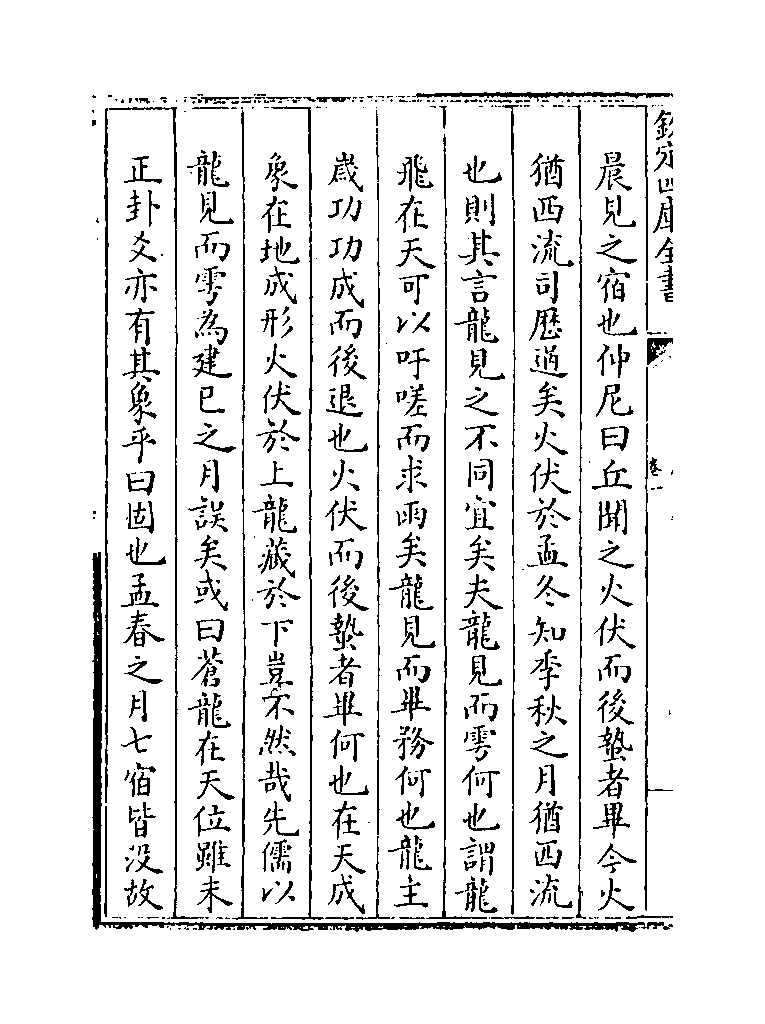 欽定四庫全書
卷一
晨見之宿也仲尼曰丘聞之火伏而後蟄者畢今火
猶西流司歴過矣火伏於孟冬知季秋之月猶西流
也則其言龍見之不同宜矣夫龍見而雩何也謂龍
飛在天可以吁嗟而求雨矣龍見而畢務何也龍主
嵗功功成而後退也火伏而後蟄者畢何也在天成
象在地成形火伏於上龍藏於下豈不然哉先儒以
龍見而雩為建巳之月誤矣或曰蒼龍在天位雖未
正卦爻亦有其象乎曰固也孟春之月七宿皆没故